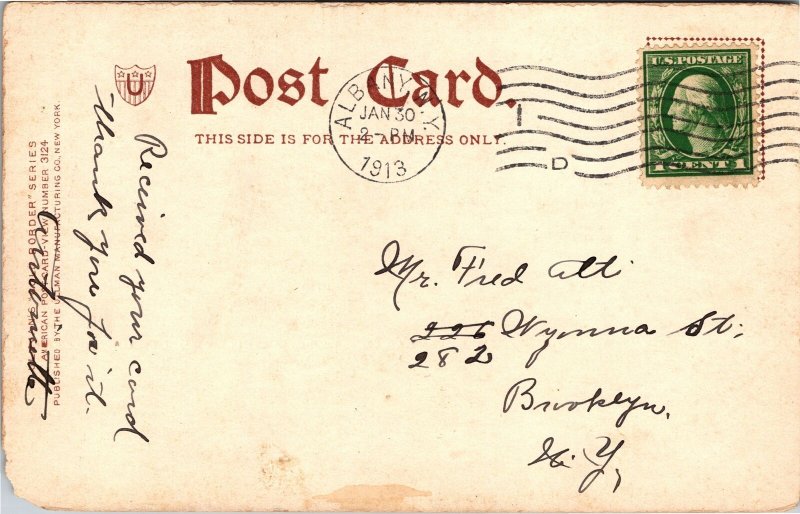 Post Card.
THIS SIDE IS FOR THE ADDRESS ONLY.
U
ALBANY, N.Y.
JAN 30
2-PM
1913
D
U.S. POSTAGE
1 CENT 1
Mr. Fred Atti
226 Wyonna St.
282
Brooklyn,
N. Y,
Received your card
thank you for it.
BORDER" SERIES
AMERICAN POSTCARD-VIEW NUMBER 3124
PUBLISHED BY THE ULLMAN MANUFACTURING CO. NEW YORK